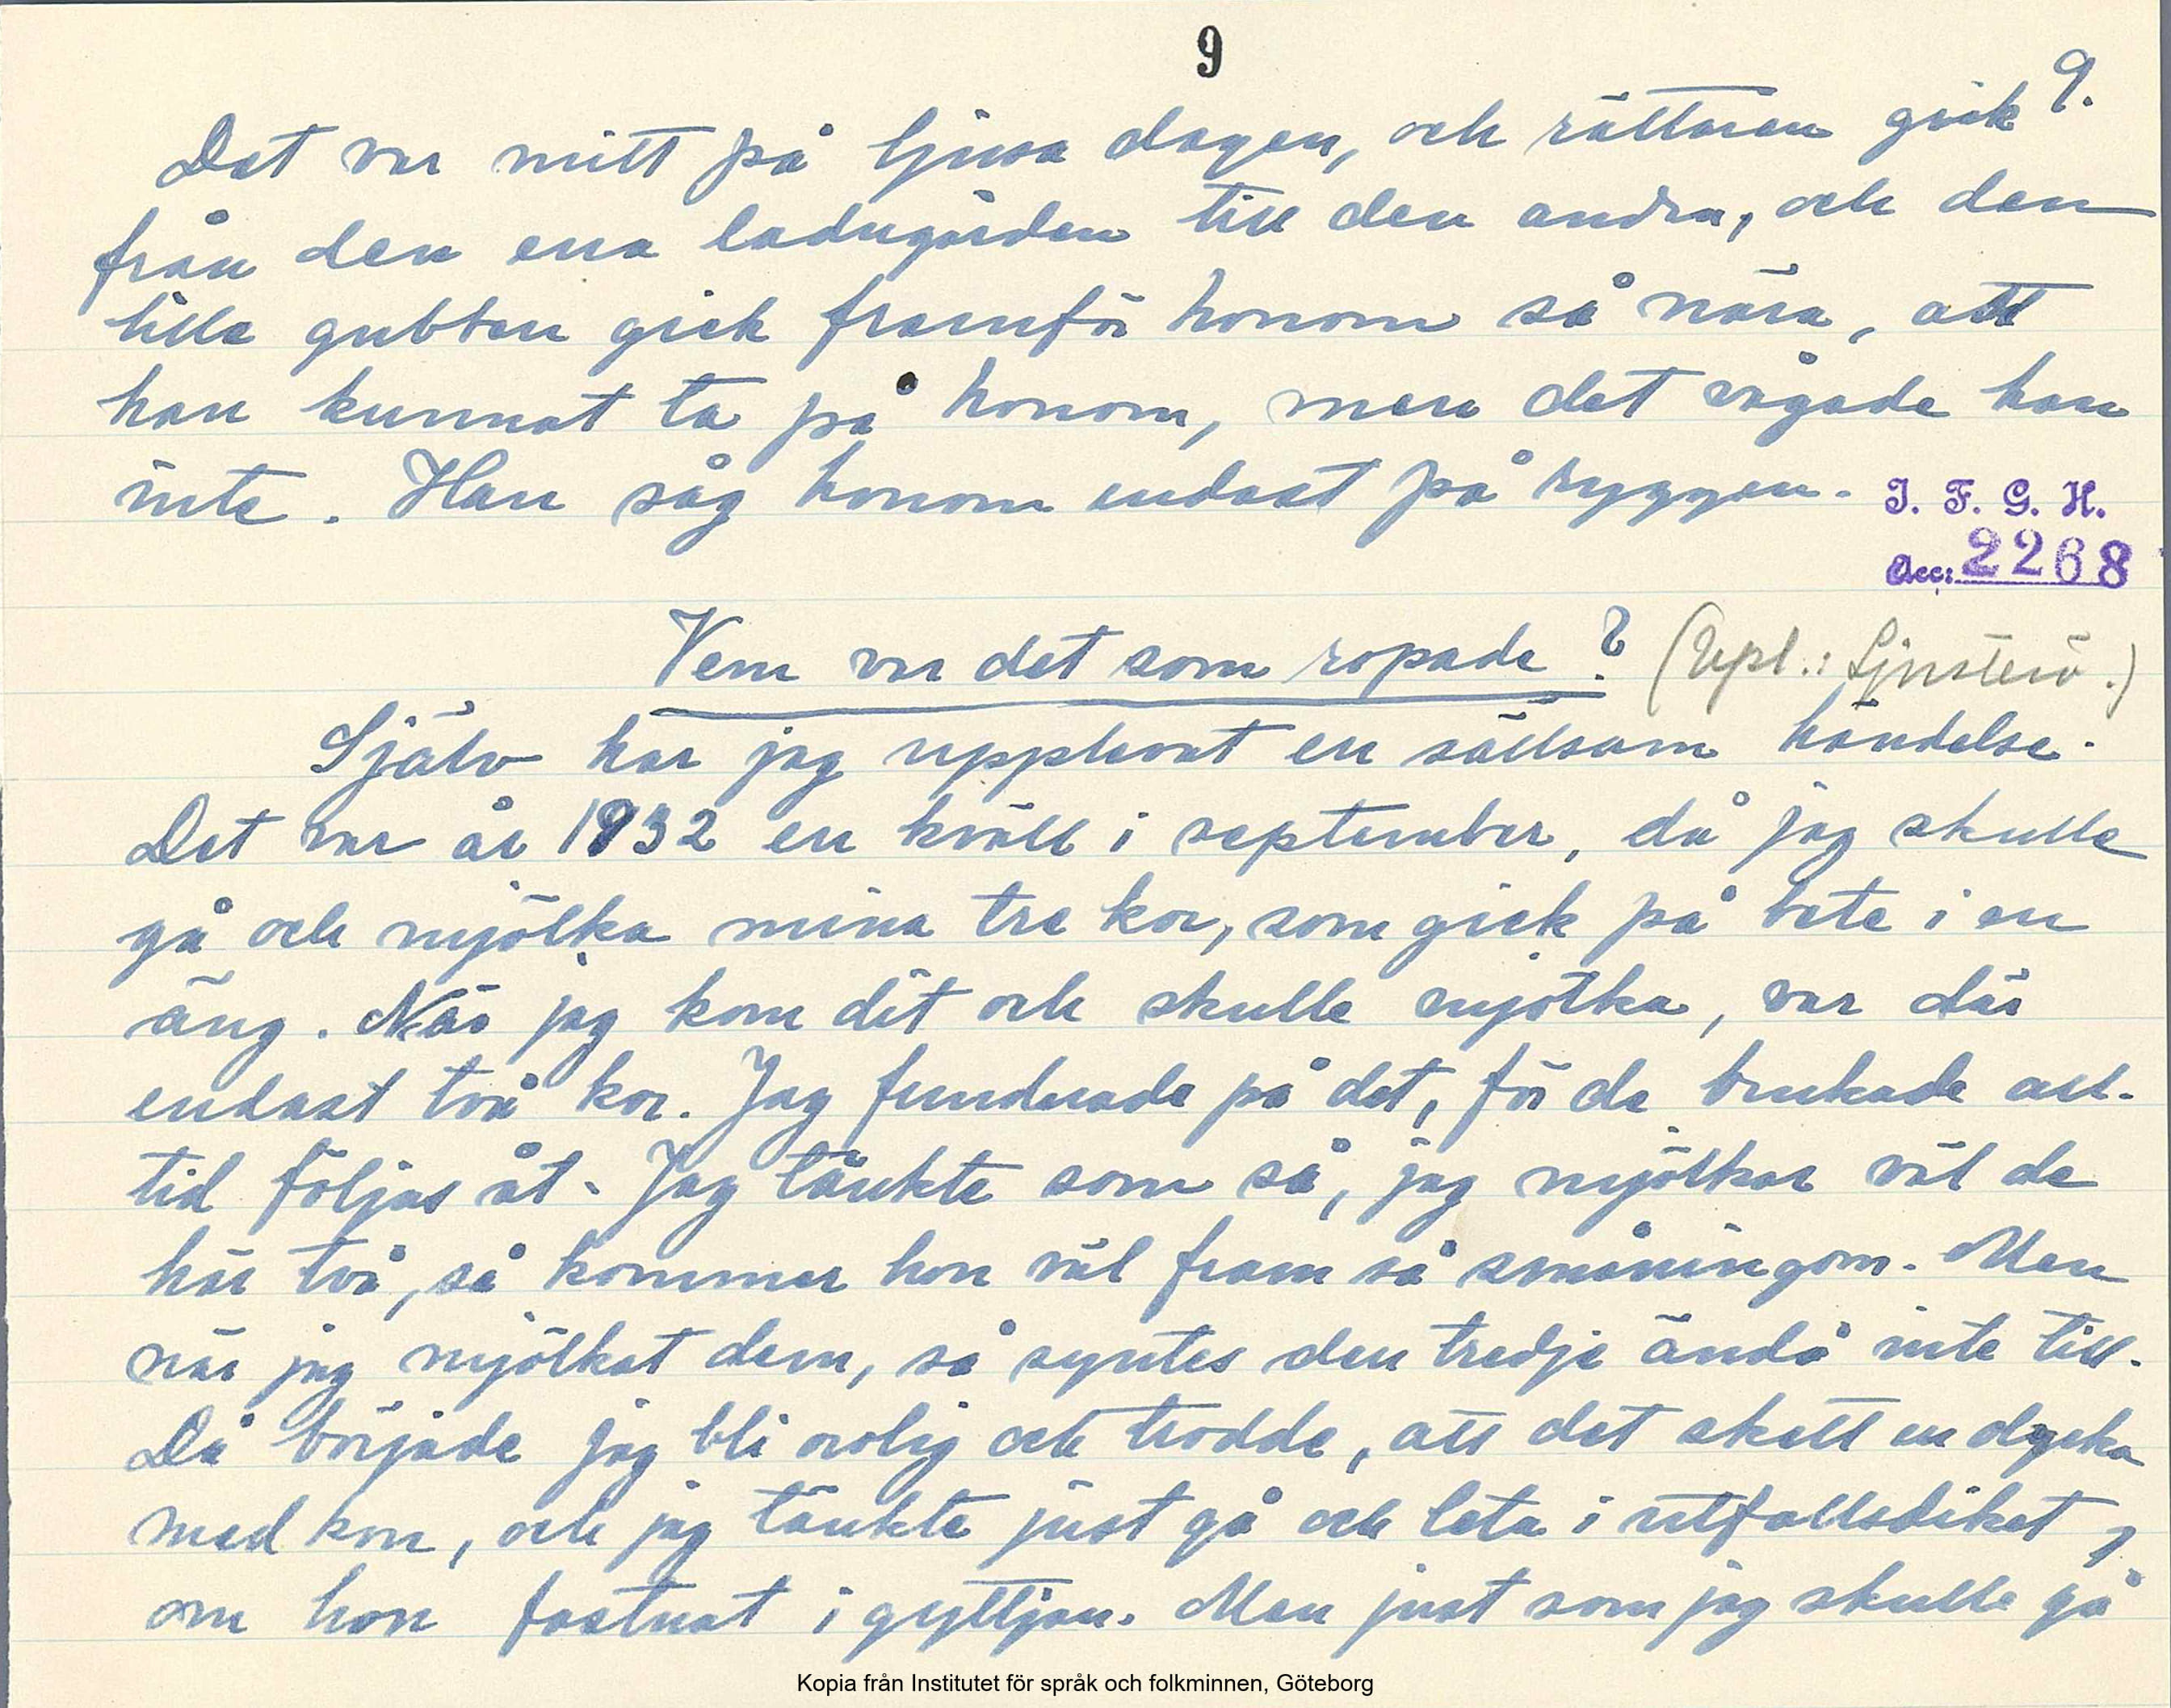 9
9.
Det var mitt på ljusa dagen, och rättaren gick
från den ena ladugården till den andra, och den
lilla gubben gick framför honom så nära, att
han kunnat ta på honom, men det vågade han
inte. Han såg honom endast på ryggen.
I. F. G. H.
Acc: 2268
Vem var det som ropade? (Uppl.: Ljusterö.)
Själv har jag upplevat en sällsam händelse.
Det var år 1932 en kväll i september, då jag skulle
gå och mjölka mina tre kor, som gick på bete i en
äng. När jag kom dit och skulle mjölka, var där
endast två kor. Jag funderade på det, för de brukade all-
tid följas åt. Jag tänkte som så, jag mjölkar väl de
här två, så kommer hon väl fram så småningom. Men
när jag mjölkat dem, så syntes den tredje ändå inte till.
Då började jag bli orolig och trodde, att det skett en olycka
med kon, och jag tänkte just gå och leta i utfallsdiket,
om hon fastnat i gyttjan. Men just som jag skulle gå
Kopia från Institutet för språk och folkminnen, Göteborg